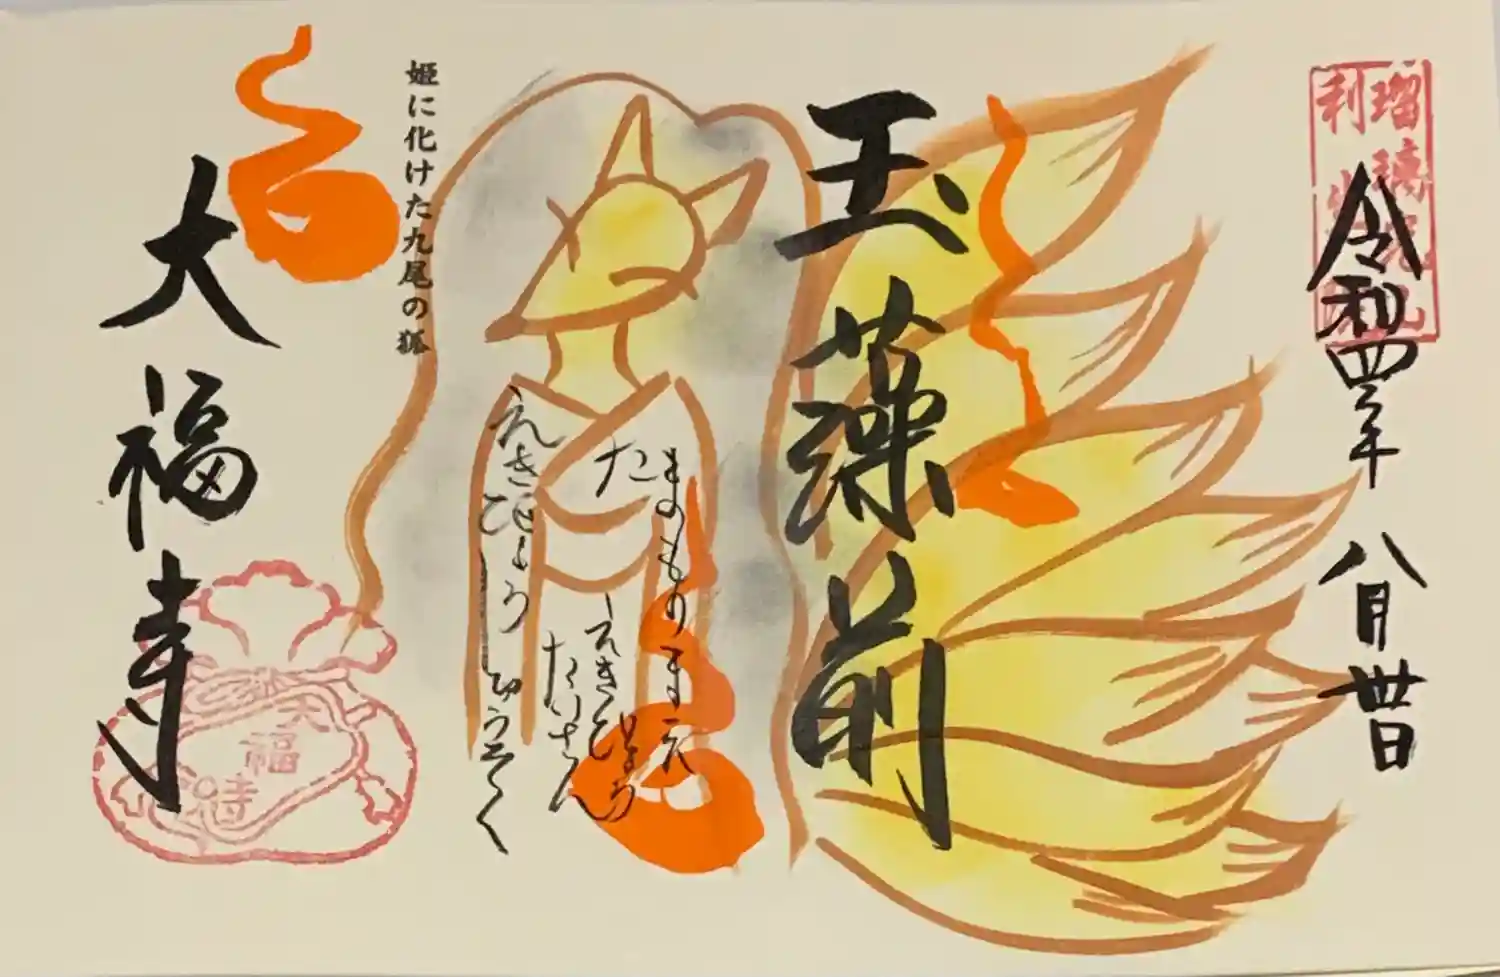 瑠璃
利
令和四年 八月丗日
玉藻前
たまものまえ
えきびょう
たいさん
えきびょう しゅうそく
姫に化けた九尾の狐
大福寺
大福寺